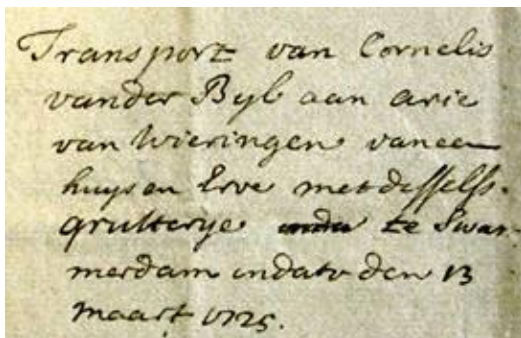 Transport van Cornelis
vander Byl aan arie
van Wieringen van een
huys en Erve met desselfs
grutterye te Swam-
merdam in dato den 13
maart 1725.